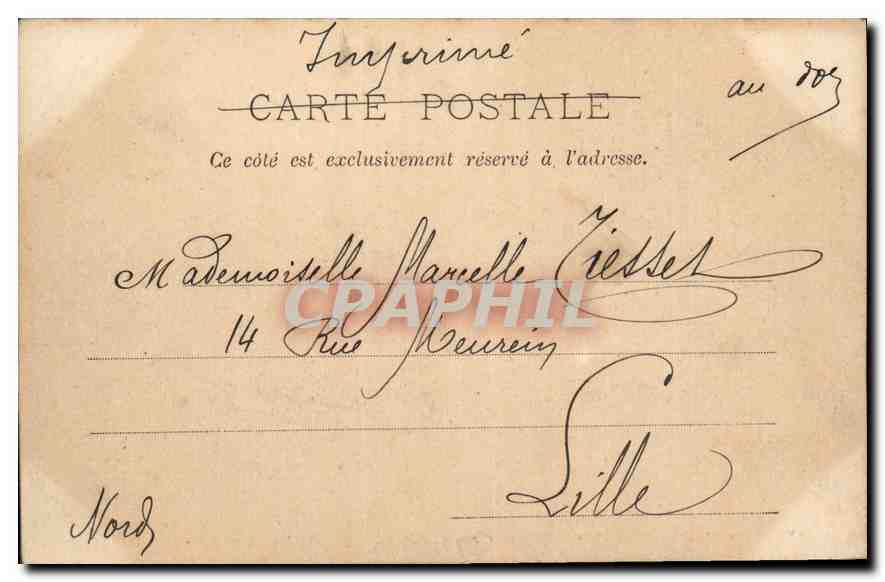 Imprimé
au dos
CARTE POSTALE
Ce côté est exclusivement réservé à l'adresse.
Mademoiselle Marcelle Tiesset
CPAPHIL
14 Rue Meurein
Lille
Nord